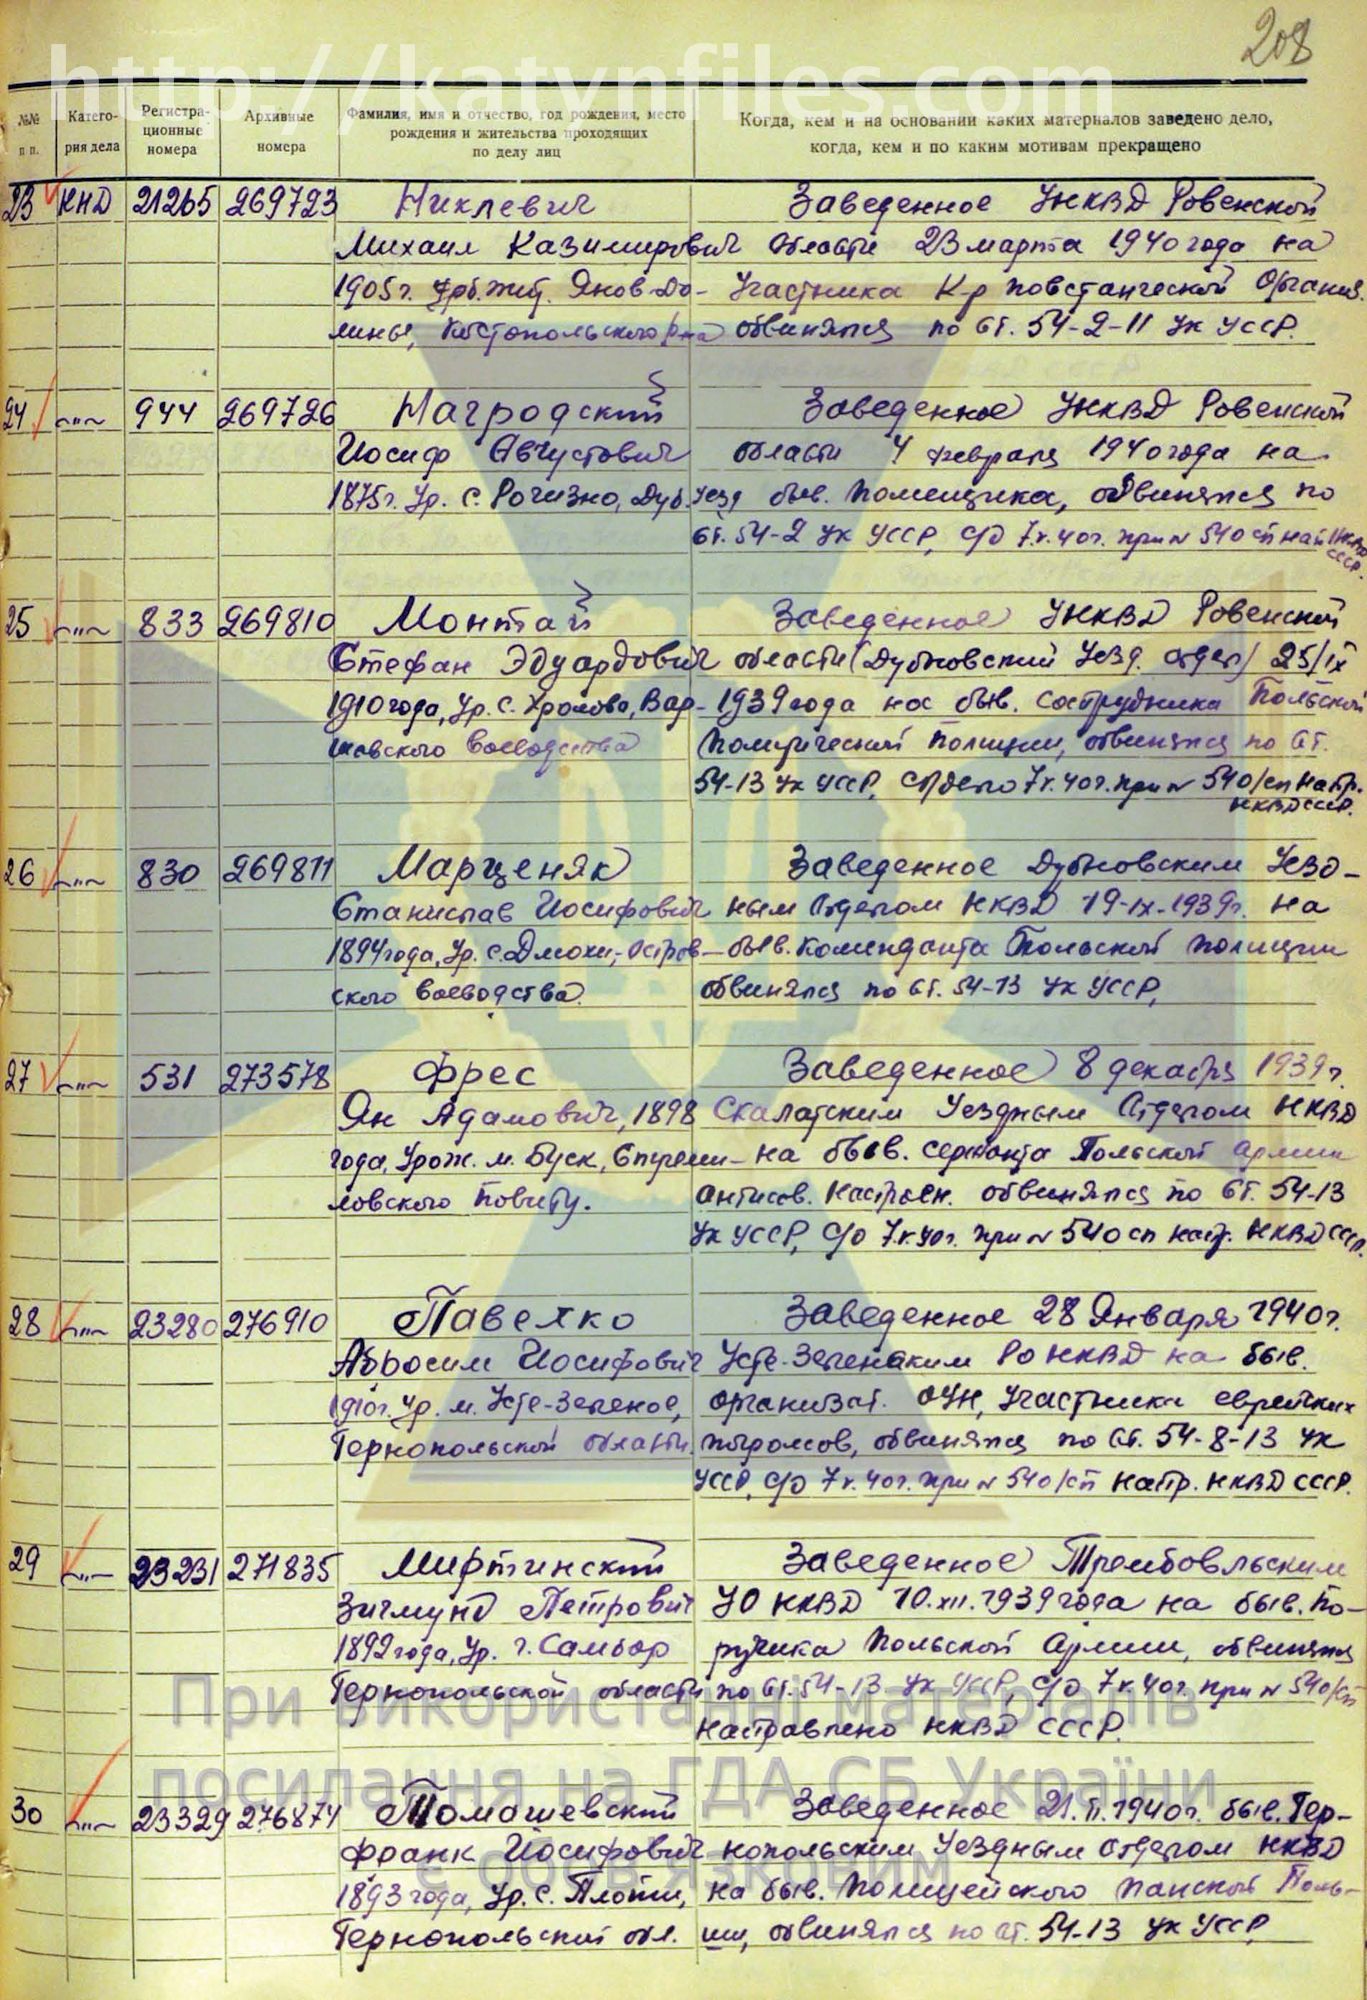 208
http://katynfiles.com
№№ п п.
Катего-
рия дела
Регистра-
ционные
номера
Архивные
номера
Фамилия, имя и отчество, год рождения, место
рождения и жительства проходящих
по делу лиц
Когда, кем и на основании каких материалов заведено дело,
когда, кем и по каким мотивам прекращено
23 КНД 21265 269723 Никлевич Заведенное УНКВД Ровенской
Михаил Казимирович области 23 марта 1940 года на
1905 г. Ур. жит. Янов-До- Участника К-р повстанческой Организ.
лины, Костопольского р-на обвинялся по ст. 54-2-11 УК УССР.
24 —"— 944 269726 Нагродский Заведенное УНКВД Ровенской
Иосиф Августович области 4 февраля 1940 года на
1875 г. Ур. с. Рогизно, Дуб. уезд быв. помещика, обвинялся по
ст. 54-2 УК УССР, с/д 7.V.40 г. при № 540 сп нап НКВД
СССР.
25 —"— 833 269810 Монтай Заведенное УНКВД Ровенской
Стефан Эдуардович области (Дубновский Уезд. отдел) 25/IX
1910 года, Ур. с. Хромова, Вар- 1939 года на быв. сотрудника Польской
шавского воеводства политической полиции, обвинялся по ст.
54-13 УК УССР, с/дело 7.V.40 г. при № 540/сп напр.
НКВД СССР.
26 —"— 830 269811 Марценяк Заведенное Дубновским Уезд-
Станислав Иосифович ным Отделом НКВД 19-IX-1939 г. на
1894 года, Ур. с. Дмохи, Остров- быв. коменданта Польской полиции
ского воеводства. обвинялся по ст. 54-13 УК УССР,
27 —"— 531 273578 Фрес Заведенное 8 декабря 1939 г.
Ян Адамович, 1898 Скалатским Уездным Отделом НКВД
года, Урож. м. Буск, на быв. сержанта Польской армии
ловского повиту. антисов. настроен. обвинялся по ст. 54-13
УК УССР, с/д 7.V.40 г. при № 540 сп напр. НКВД СССР.
28 —"— 23280 276910 Павелко Заведенное 28 Января 1940 г.
Абросим Иосифович Усте-Зеленским РО НКВД на быв.
1910 г. Ур. м. Усте-Зеленое, организат. ОУН, Участника еврейских
Тернопольской области. погромов, обвинялся по ст. 54-8-13 УК
УССР, с/д 7.V.40 г. при № 540/сп напр. НКВД СССР.
29 —"— 23231 271835 Мифтинский Заведенное Трембовльским
Зигмунд Петрович УО НКВД 10.XII.1939 года на быв. По-
1892 года, Ур. г. Самбор ручика Польской Армии, обвинялся
Тернопольской области по ст. 54-13 УК УССР, с/д 7.V.40 г. при № 540/сп
направлено НКВД СССР.
30 —"— 23329 276874 Томашевский Заведенное 21.II.1940 г. быв. Тер-
Франк Иосифович нопольским Уездным Отделом НКВД
1893 года, Ур. с. Плоти, на быв. полицейского панской Поль-
Тернопольский обл. ши, обвинялся по ст. 54-13 УК УССР
При використанні матеріалів
посилання на ГДА СБ України
є обов'язковим